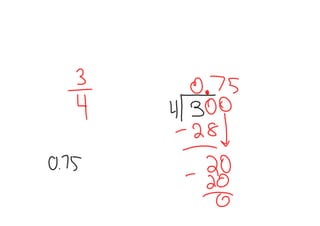 3
4
0.75
0.75
4 300
- 28
20
- 20
0